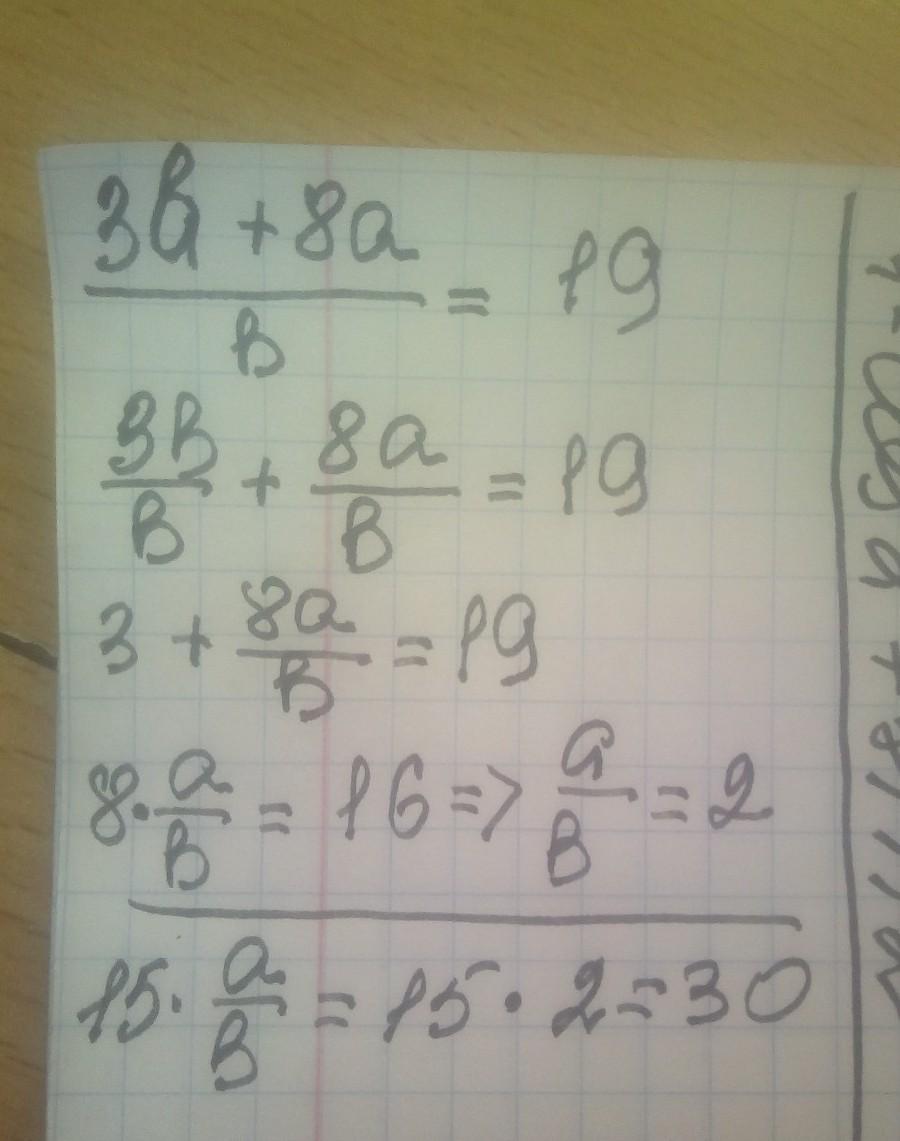 3в + 8a / в = 19
3в/в + 8a/в = 19
3 + 8a/в = 19
8 · a/в = 16 => a/в = 2
15 · a/в = 15 · 2 = 30